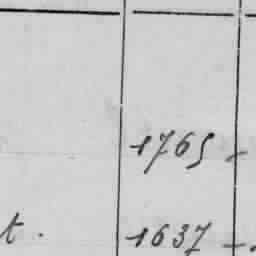 1765 -
t. 1637 -.